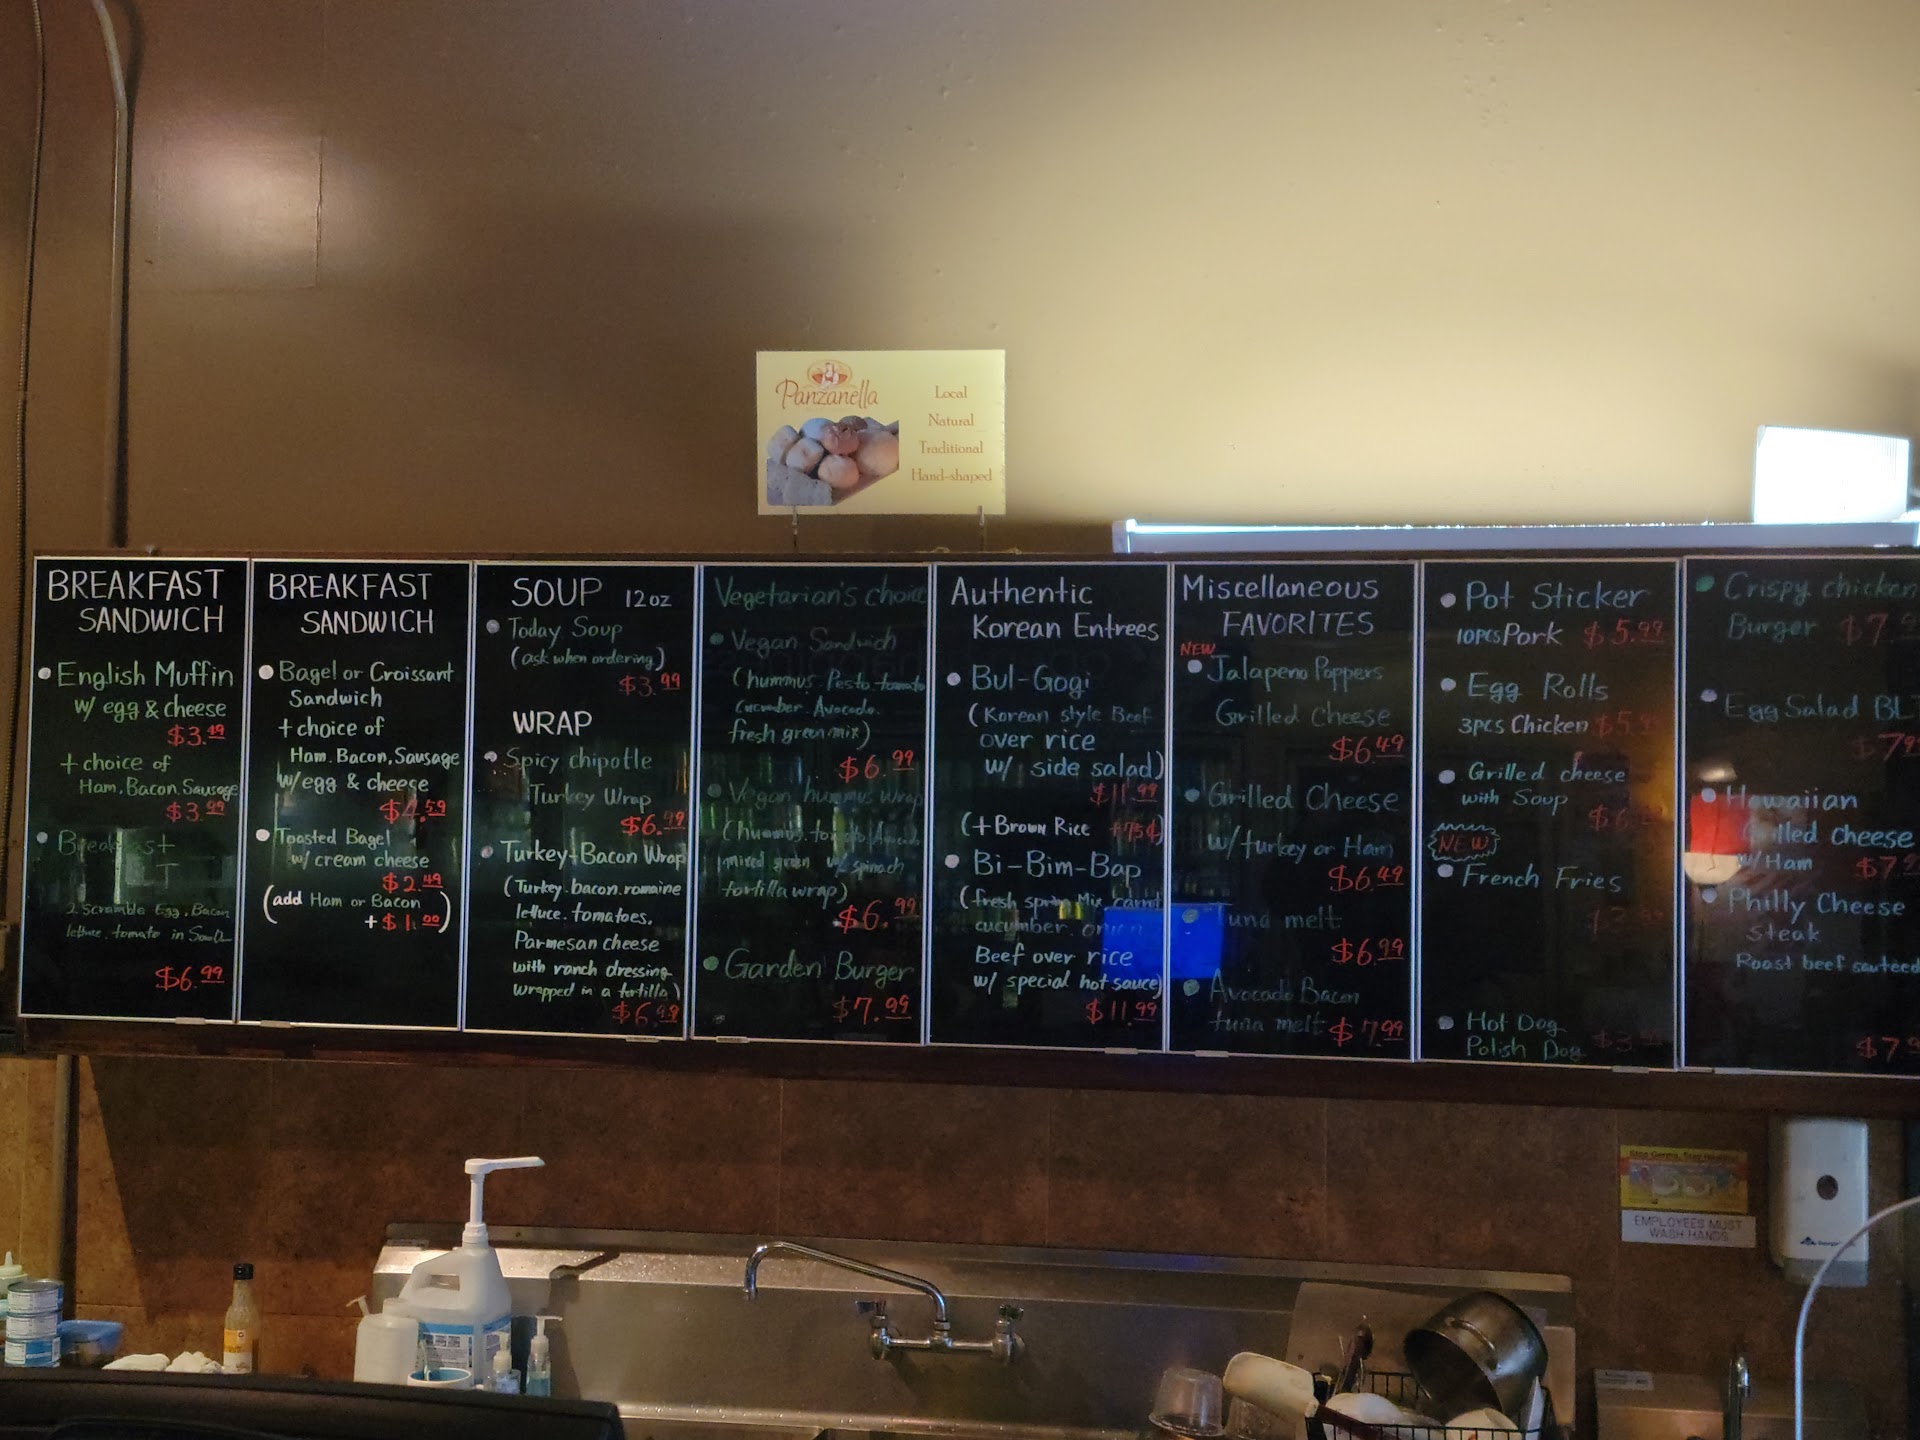 Panzanella
Local
Natural
Traditional
Hand-shaped
BREAKFAST
SANDWICH
English Muffin
w/ egg & cheese
$3.49
+ choice of
Ham, Bacon, Sausage
$3.99
2 Scramble Egg, Bacon
lettuce, tomato in
$6.99
BREAKFAST
SANDWICH
Bagel or Croissant
Sandwich
+ choice of
Ham, Bacon, Sausage
w/egg & cheese
$4.59
Toasted Bagel
w/ cream cheese
$2.49
(add Ham or Bacon
+ $1.00)
SOUP 12oz
Today Soup
(ask when ordering)
$3.99
WRAP
Spicy chipotle
Turkey Wrap
$6.99
Turkey+Bacon Wrap
(Turkey. bacon. romaine
lettuce. tomatoes.
Parmesan cheese
with ranch dressing
wrapped in a tortilla)
$6.99
Vegetarian's choice
Vegan Sandwich
(hummus. Pesto. tomato
cucumber. Avocado.
fresh green mix)
$6.99
Vegan hummus wrap
(hummus. tomato. Avocado
mixed green w/ spinach
tortilla wrap)
$6.99
Garden Burger
$7.99
Authentic
Korean Entrees
Bul-Gogi
(Korean style Beef
over rice
w/ side salad)
$11.99
(+Brown Rice +75¢)
Bi-Bim-Bap
(fresh spring Mix, carrot
cucumber. onion
Beef over rice
w/ special hot sauce)
$11.99
Miscellaneous
FAVORITES
NEW
Jalapeno Poppers
Grilled Cheese
$6.49
Grilled Cheese
w/turkey or Ham
$6.49
Tuna melt
$6.99
Avocado Bacon
tuna melt $7.99
Pot Sticker
10pcs Pork $5.99
Egg Rolls
3pcs Chicken
Grilled cheese
with Soup
NEW
French Fries
Hot Dog
Polish Dog
Crispy chicken
Burger
Egg Salad
Hawaiian
Grilled cheese
w/Ham
Philly Cheese
Steak
Roast beef sauteed
EMPLOYEES MUST
WASH HANDS